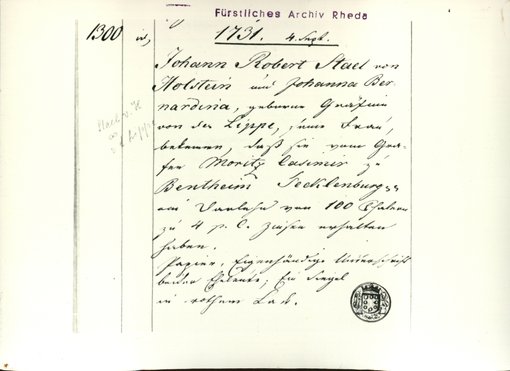 Fürstliches Archiv Rheda
1300 1731. 4. Sept.
Johann Robert Stael von
Holstein und Johanna Ber-
nardina, geborne Gräfinn
von der Lippe, seine Frau,
bekennen, daß sie vom Gra-
fen Moritz Casimir zu
Bentheim Tecklenburg
ein Darlehn von 100 Thalern
zu 4 p. C. Zinsen erhalten
haben.
Papier, Eigenhändige Unterschrift
beider Eheleute; Ein Siegel
in rothem Lack.
Lippe